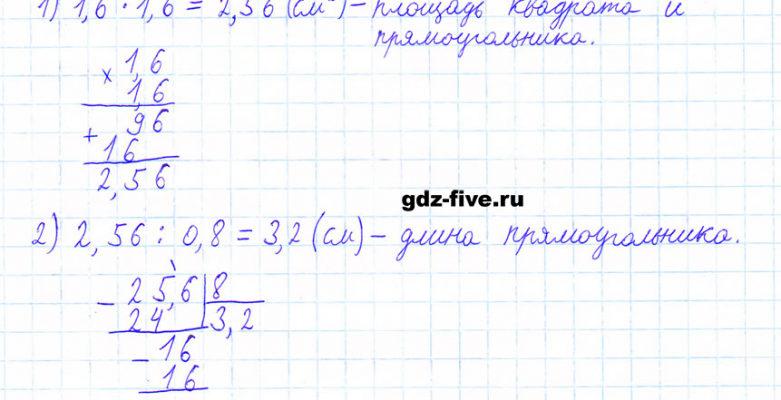 1) 1,6 · 1,6 = 2,56 (см²) – площадь квадрата и
прямоугольника.
× 1,6
1,6
+ 96
16
2,56
gdz-five.ru
2) 2,56 : 0,8 = 3,2 (см) – длина прямоугольника.
– 25,6 | 8
24 3,2
– 16
16